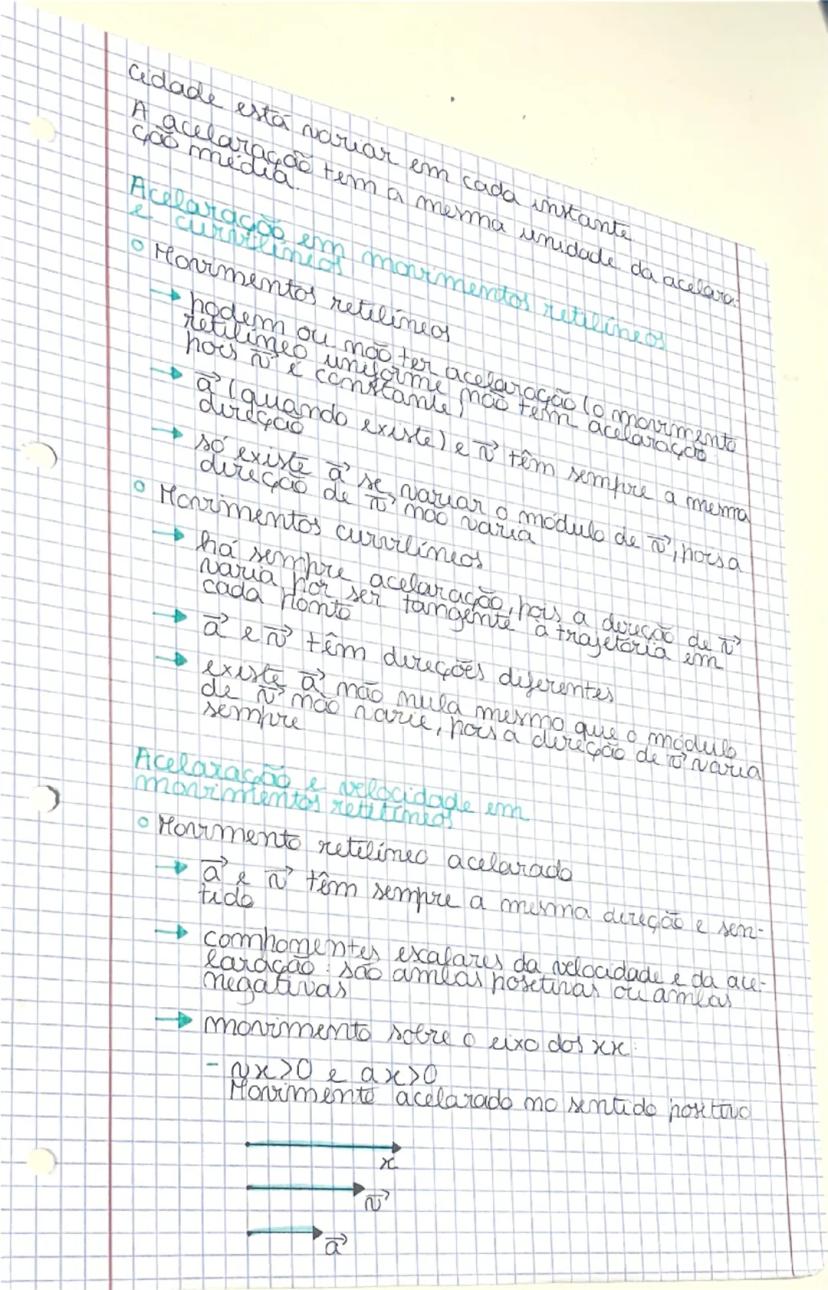 cidade está variar em cada instante
A acelaração tem a mesma unidade da acelara-
ção média.
Acelaração em movimentos retilíneos
e curvilíneos
Movimentos retilíneos
→ podem ou não ter acelaração (o movimento
retilíneo uniforme não tem acelaração
pois v⃗ é constante)
→ a⃗ (quando existe) e v⃗ têm sempre a mesma
direção
→ só existe a⃗ se variar o módulo de v⃗, pois a
direção de v⃗ não varia
Movimentos curvilíneos
→ há sempre acelaração, pois a direção de v⃗
varia por ser tangente à trajetória em
cada ponto
→ a⃗ e v⃗ têm direções diferentes
→ existe a⃗ não nula mesmo que o módulo
de v⃗ não varie, pois a direção de v⃗ varia
sempre
Acelaração e velocidade em
movimentos retilíneos
Movimento retilíneo acelarado
→ a⃗ e v⃗ têm sempre a mesma direção e sen-
tido
→ componentes escalares da velocidade e da ace-
laração: são ambas posetivas ou ambas
negativas
→ movimento sobre o eixo dos xx:
- vx>0 e ax>0
Movimento acelarado no sentido posetivo
x
v⃗
a⃗